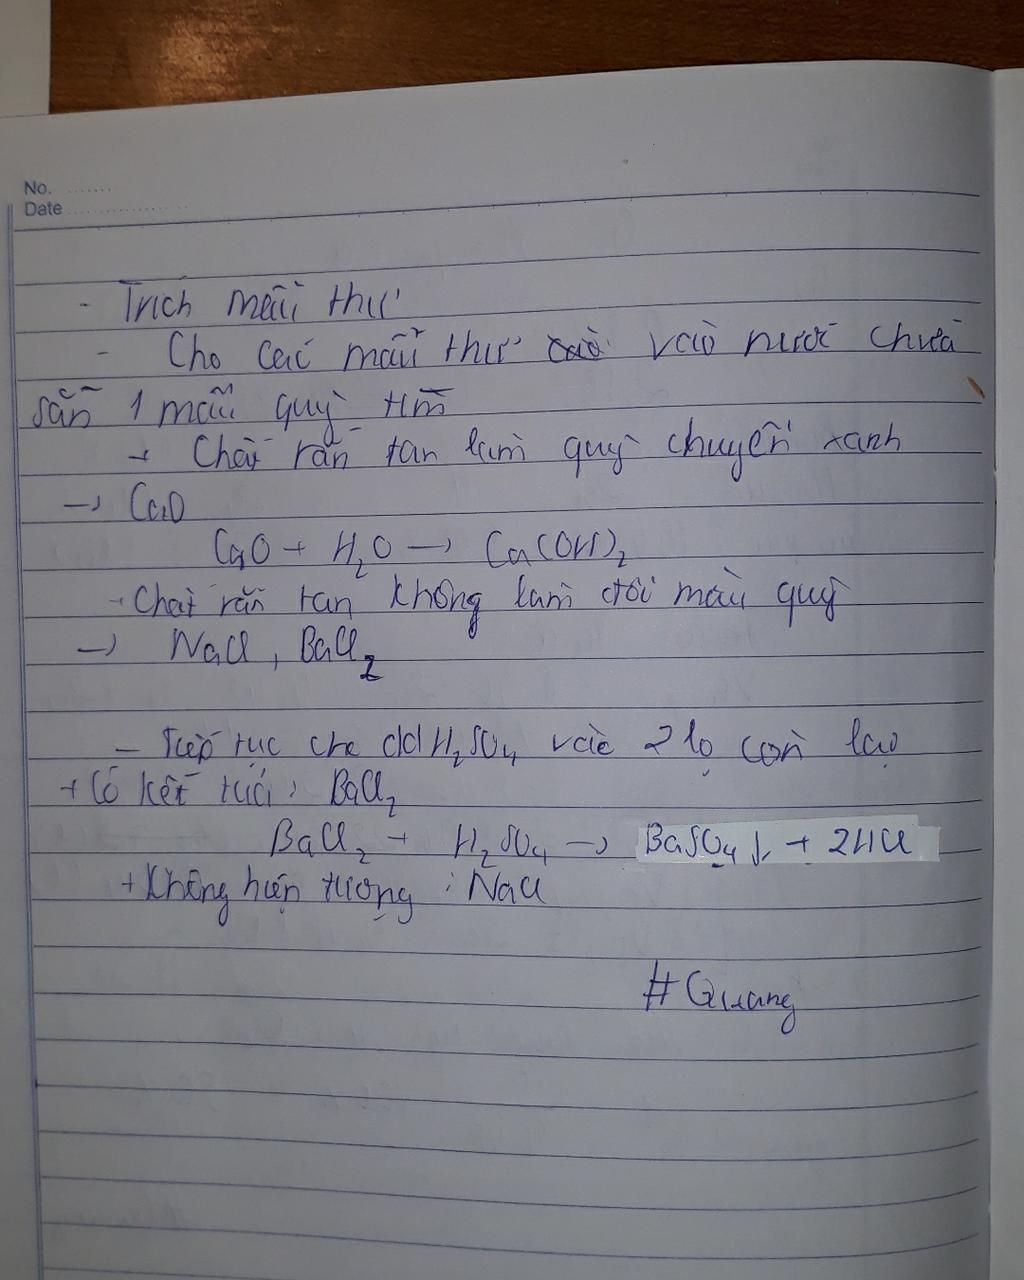 No. .......
Date ................
- Trích mẫu thử
- Cho các mẫu thử vào nước chứa
sẵn 1 mẫu quỳ tím
+ Chất rắn tan làm quỳ chuyển xanh
→ CaO
CaO + H₂O → Ca(OH)₂
- Chất rắn tan không làm đổi màu quỳ
→ NaCl, BaCl₂
- Tiếp tục cho dd H₂SO₄ vào 2 lọ còn lại
+ Có kết tủa: BaCl₂
BaCl₂ + H₂SO₄ → BaSO₄↓ + 2HCl
+ Không hiện tượng : NaCl
# Quang